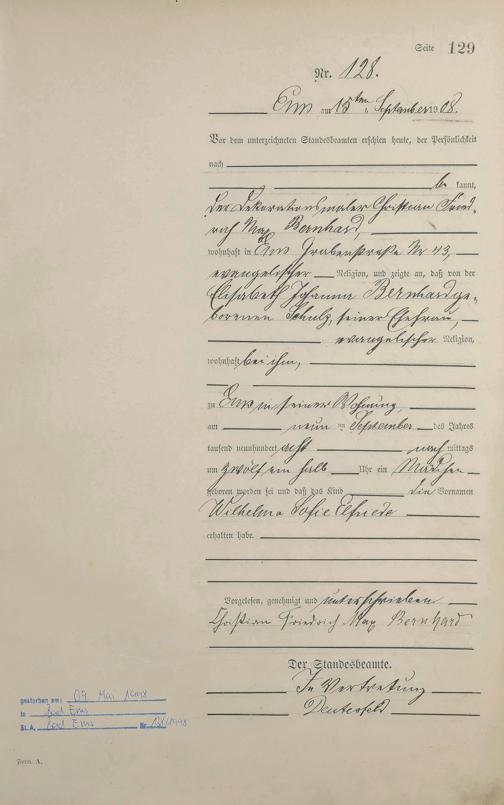 Seite 129
Nr. 128.
Ems am 15ten September 1908.
Vor dem unterzeichneten Standesbeamten erschien heute, der Persönlichkeit
nach
be kannt,
der Dekorationsmaler Christian Fried-
rich Max Bernhard,
wohnhaft in Ems Grabenstraße Nr 43,
evangelischer Religion, und zeigte an, daß von der
Elisabeth Johanna Bernhard ge-
borenen Schulz, seiner Ehefrau,
evangelischer Religion,
wohnhaft bei ihm,
zu Ems in seiner Wohnung,
am neun ten September des Jahres
tausend neunhundert acht nach mittags
um zwölf ein halb Uhr ein Mädchen
geboren worden sei und daß das Kind die Vornamen
Wilhelma Sofie Elfriede
erhalten habe.
Vorgelesen, genehmigt und unterschrieben
Christian Friedrich Max Bernhard
Der Standesbeamte.
In Vertretung
gestorben am: 09. Mai 1998
in Bad Ems
St.A. Bad Ems Nr.
Form. A.